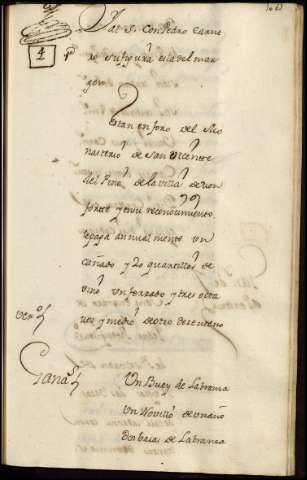 al S. con Pedro Carne
ro su figura es la del mar
gen
4
Estan en foro del Mo
nasterio de San Vicente
del Pino de la villa de Mon
forte y en su reconocimiento
se paga annualmente un
cañado y 20 quartillos de
vino un ferrado y tres octa
vas y medio de otro de centeno
Ganados
Un Buey de Labranza
Un Novillo de un año
Dos bacas de Labranza